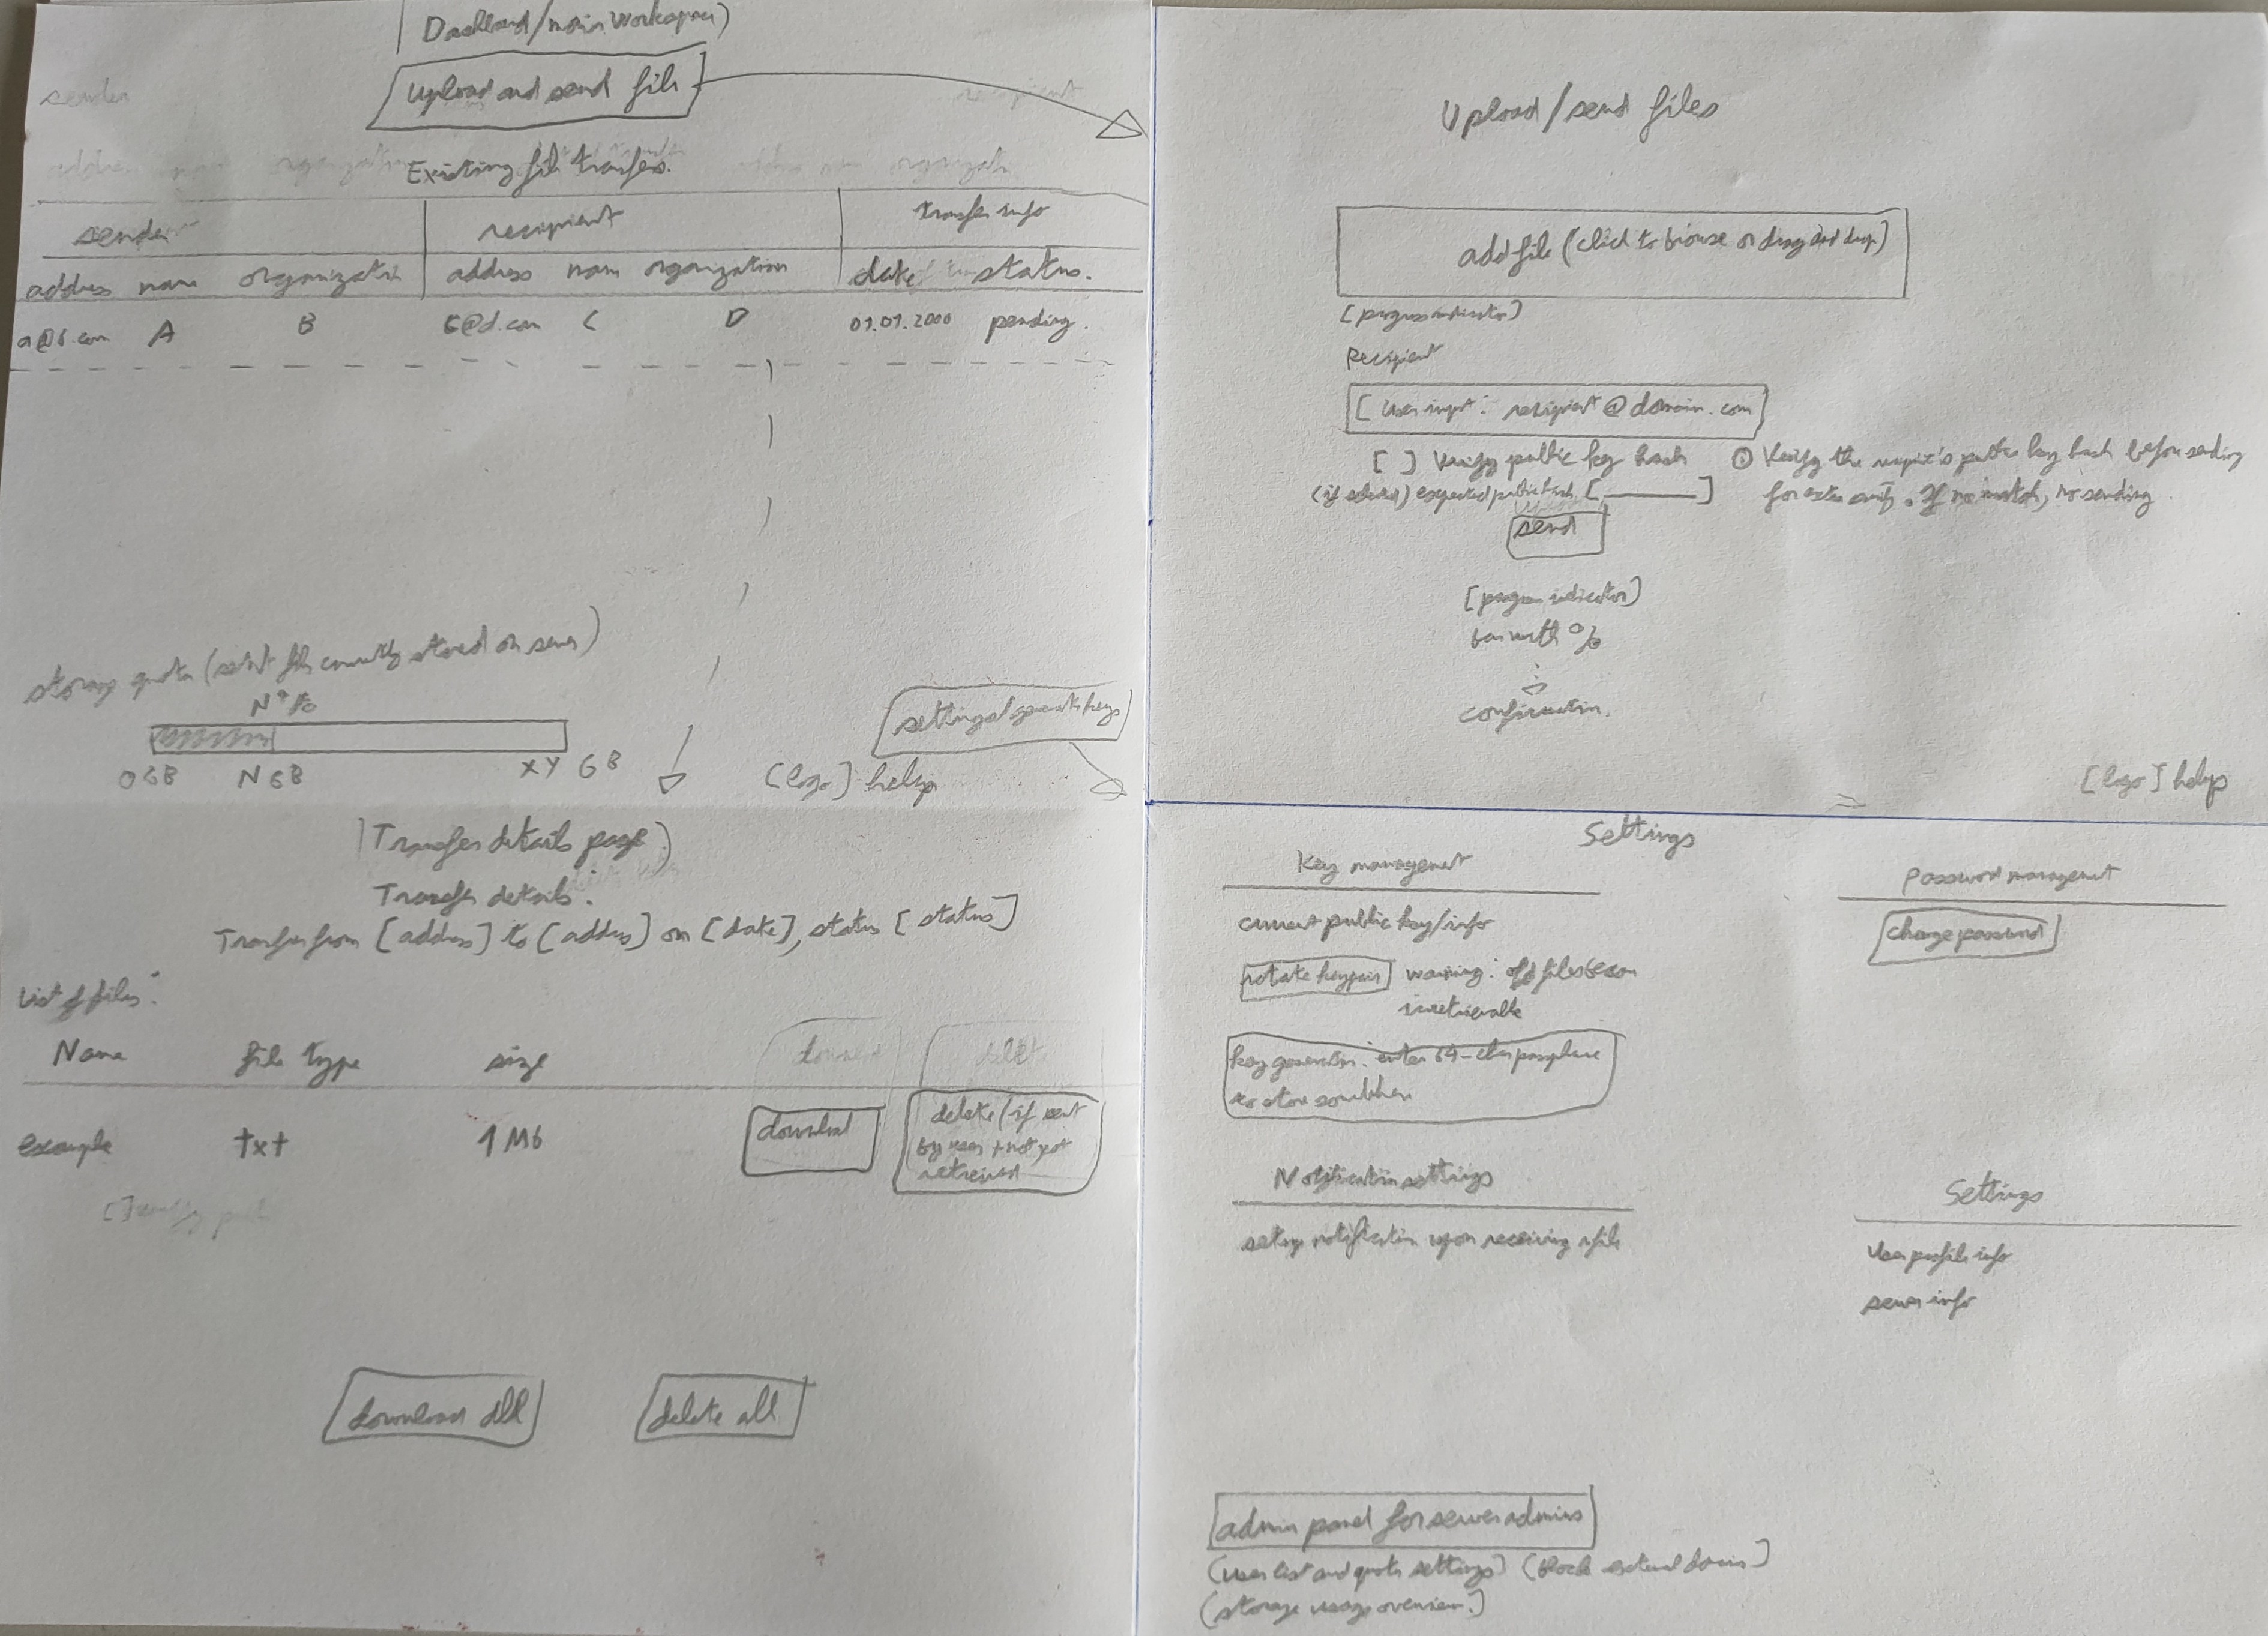 Dashboard/main workspace)
upload and send file
Existing file transfers.
sender
recipient
transfer info
address name organization
address name organization
date status.
a@b.com A B
c@d.com C D
01.01.2000 pending.
storage quota (sent files currently stored on server)
N %
0 GB N GB XY GB
settings/generate keys
[logo] help
Transfer details page)
Transfer details:
Transfer from [address] to [address] on [date], status [status]
List of files:
Name file type size
example txt 1 Mb
download
delete (if sent
by user + not yet
retrieved
download all
delete all
Upload/send files
add file (click to browse or drag and drop)
[progress indicator]
Recipient
[user input: recipient@domain.com
[ ] Verify public key hash
(if selected) expected public hash [ ]
Verify the recipient's public key hash before sending
for extra security. If no match, no sending
send
[progress indicator]
bar with %
confirmation.
[logo] help
Settings
Key management
current public key/info
rotate keypair warning: old files become
irretrievable
key generation: enter 64-char passphrase
to store somewhere
Password management
change password
Notification settings
setup notification upon receiving a file
Settings
User profile info
server info
admin panel for server admins
(user list and quota settings) (block external domains)
(storage usage overview)